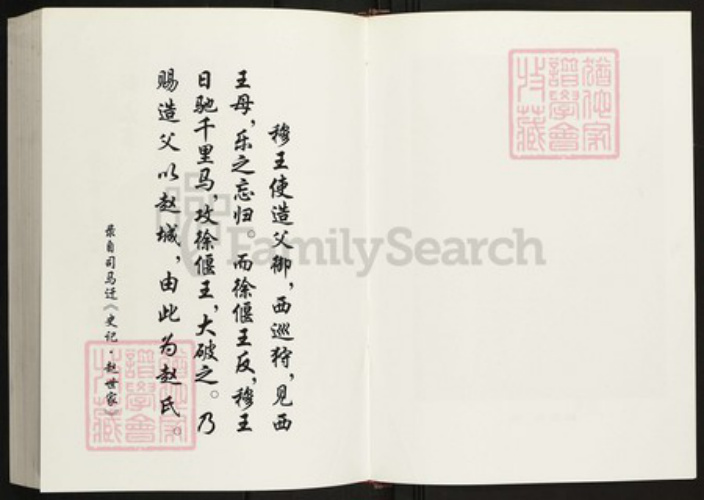 穆王使造父御，西巡狩，见西
王母，乐之忘归。而徐偃王反，穆王
日驰千里马，攻徐偃王，大破之。乃
赐造父以赵城，由此为赵氏。
录自司马迁《史记·赵世家》
FamilySearch